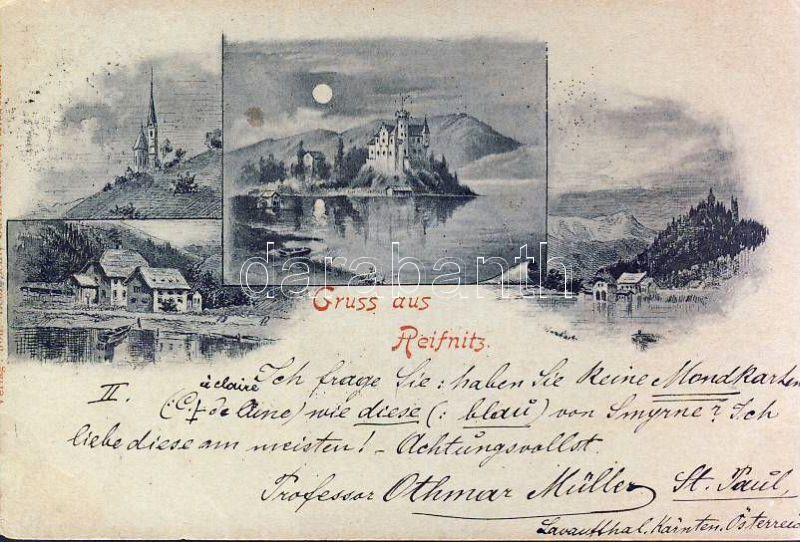 Gruss aus
Reifnitz.
darabanth
à claire
II. Ich frage Sie: haben Sie keine Mondkarten
de Lune) wie diese (: blau) von Smyrne? Ich
liebe diese am meisten! - Achtungsvollst.
Professor Othmar Müller, St. Paul,
Lavantthal, Kärnten. Österreich